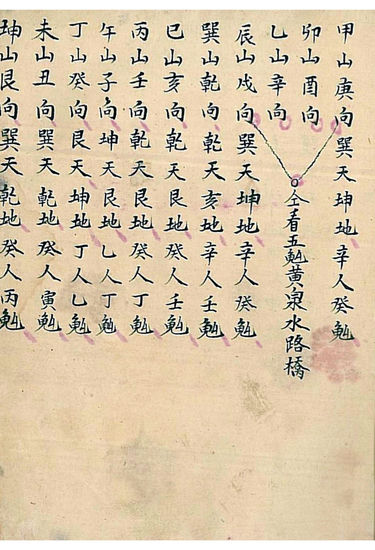 甲山庚向巽天坤地辛人癸勉
卯山酉向
乙山辛向
仝看五勉黃泉水路橋
辰山戌向巽天坤地辛人癸勉
巽山乾向乾天亥地辛人壬勉
巳山亥向乾天艮地癸人壬勉
丙山壬向乾天艮地癸人丁勉
午山子向坤天艮地乙人丁勉
丁山癸向艮天坤地丁人乙勉
未山丑向巽天乾地癸人寅勉
坤山艮向巽天乾地癸人丙勉